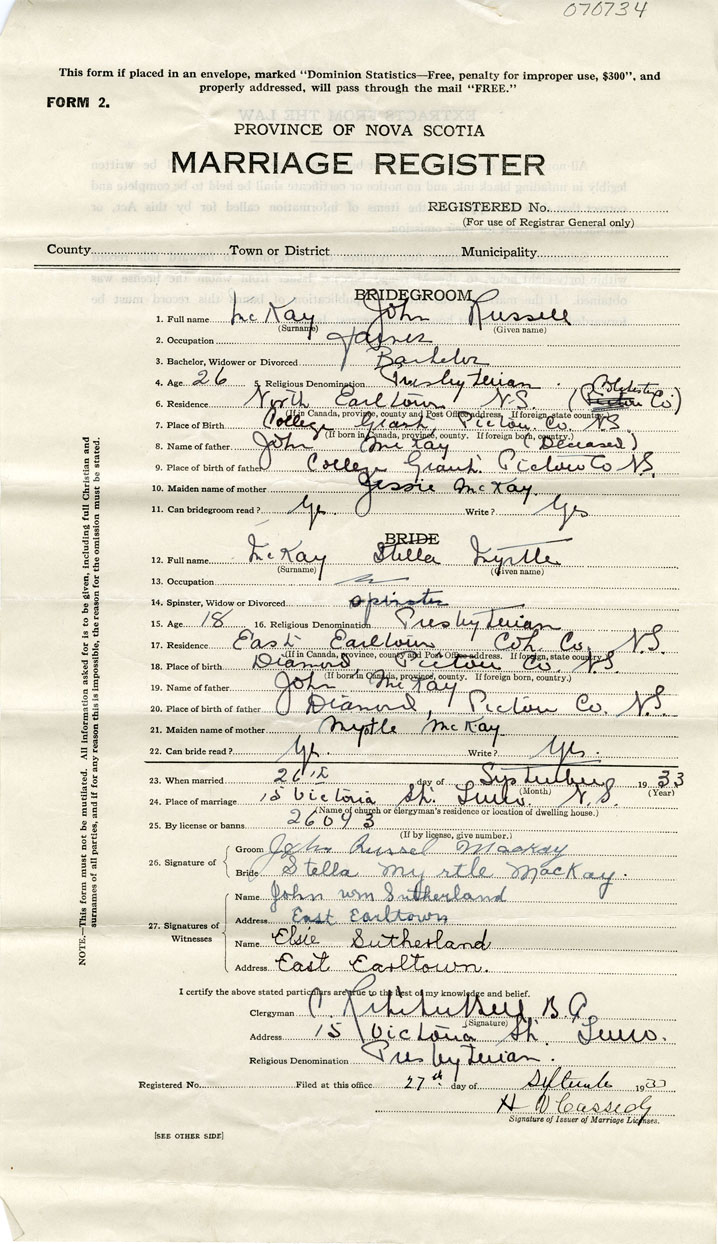 070734
This form if placed in an envelope, marked "Dominion Statistics—Free, penalty for improper use, $300", and
properly addressed, will pass through the mail "FREE."
FORM 2.
PROVINCE OF NOVA SCOTIA
MARRIAGE REGISTER
REGISTERED No.
(For use of Registrar General only)
County Town or District Municipality
BRIDEGROOM
1. Full name McKay John Russell
(Surname) (Given name)
2. Occupation Farmer
3. Bachelor, Widower or Divorced Bachelor
4. Age 26 5. Religious Denomination Presbyterian
6. Residence North Earltown N.S. (Colchester Co)
(If in Canada, province, county and Post Office address. If foreign, state country.)
7. Place of Birth College Grant Pictou Co. N.S.
(If born in Canada, province, county. If foreign born, country.)
8. Name of father John McKay (Deceased)
9. Place of birth of father College Grant Pictou Co N.S.
10. Maiden name of mother Jessie McKay
11. Can bridegroom read? Yes Write? Yes
BRIDE
12. Full name McKay Stella Myrtle
(Surname) (Given name)
13. Occupation
14. Spinster, Widow or Divorced spinster
15. Age 18 16. Religious Denomination Presbyterian
17. Residence East Earltown Col. Co. N.S.
(If in Canada, province, county and Post Office address. If foreign, state country.)
18. Place of birth Diamond, Pictou Co. N.S.
(If born in Canada, province, county. If foreign born, country.)
19. Name of father John McKay
20. Place of birth of father Diamond, Pictou Co. N.S.
21. Maiden name of mother Myrtle McKay
22. Can bride read? Yes. Write? Yes.
23. When married 26th day of September 1933
(Month) (Year)
24. Place of marriage 15 Victoria St. Truro N.S.
(Name of church or clergyman's residence or location of dwelling house.)
25. By license or banns 26093
(If by license, give number.)
26. Signature of
Groom John Russel MacKay
Bride Stella Myrtle MacKay.
27. Signatures of Witnesses
Name John Wm Sutherland
Address East Earltown
Name Elsie Sutherland
Address East Earltown.
I certify the above stated particulars are true to the best of my knowledge and belief.
Clergyman B.A.
(Signature)
Address 15 Victoria St. Truro.
Religious Denomination Presbyterian.
Registered No. Filed at this office 27th day of September 1933
H W Cassidy
Signature of Issuer of Marriage Licenses.
[SEE OTHER SIDE]
NOTE.—This form must not be mutilated. All information asked for is to be given, including full Christian and
surnames of all parties, and if for any reason this is impossible, the reason for the omission must be stated.